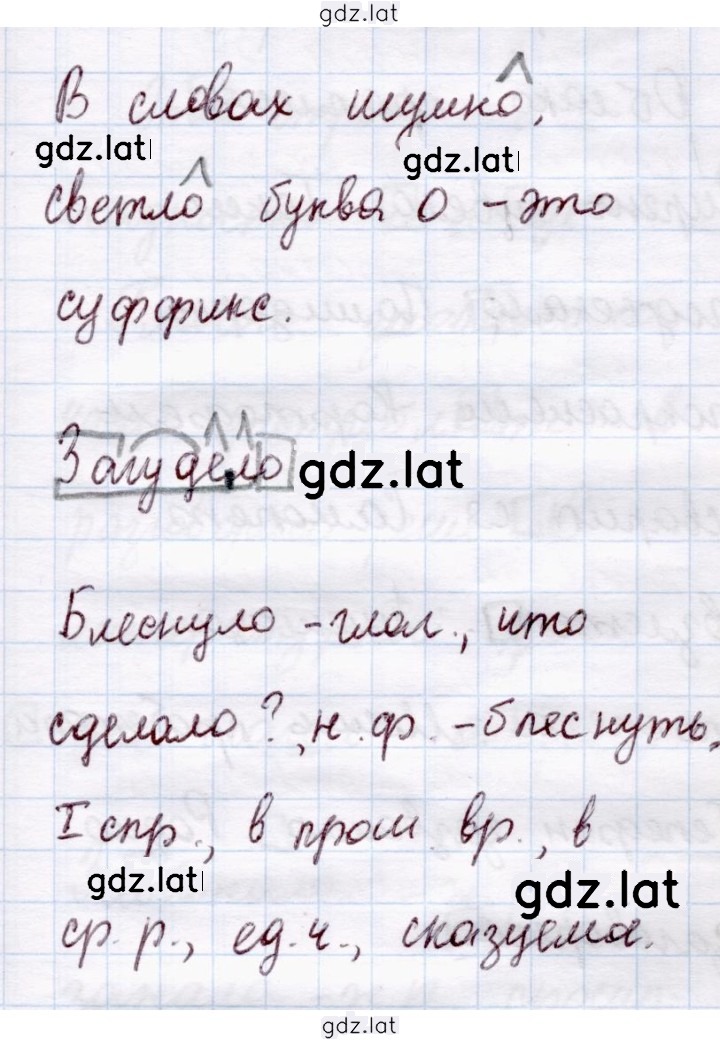 gdz.lat
В словах шумно,
gdz.lat gdz.lat
светло буква о – это
суффикс.
Загудело gdz.lat
Блеснуло – глаг., что
сделало?, н. ф. – блеснуть,
I спр., в прош. вр., в
gdz.lat gdz.lat
ср. р., ед. ч., сказуема.
gdz.lat